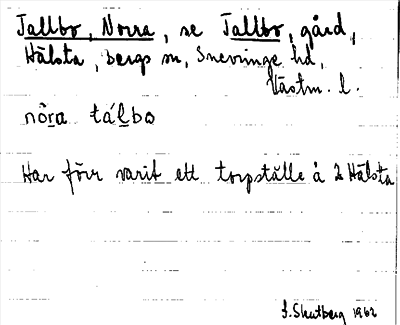 Tallbo, Norra, se Tallbo, gård,
Hälsta, Bergs sn, Snevringe hd,
Västm. l.
nôra tálbo
Har förr varit ett torpställe å 2 Hälsta
S. Skutberg 1962